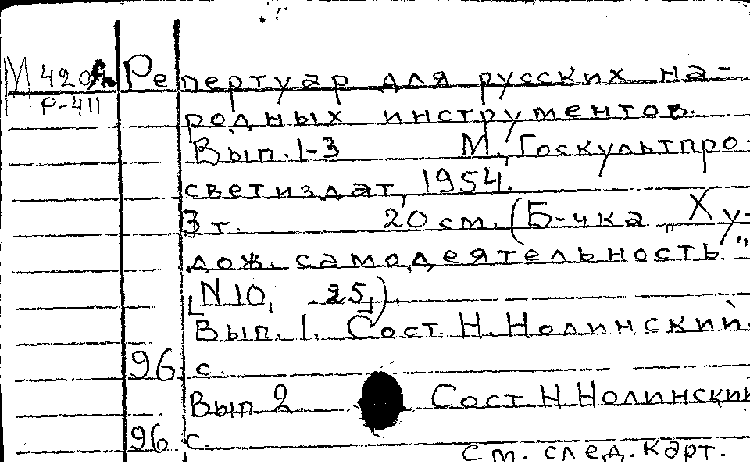 М 420А Репертуар для русских на-
Р-411 родных инструментов.
Вып. 1-3 М., Госкультпро-
светиздат, 1954.
3 т. 20 см. (Б-чка „Ху-
дож. самодеятельность"
N 10, 25,).
Вып. 1. Сост. Н. Нолинский.
96 с.
Вып 2 Сост. Н Нолинский
96 с.
См. след. карт.